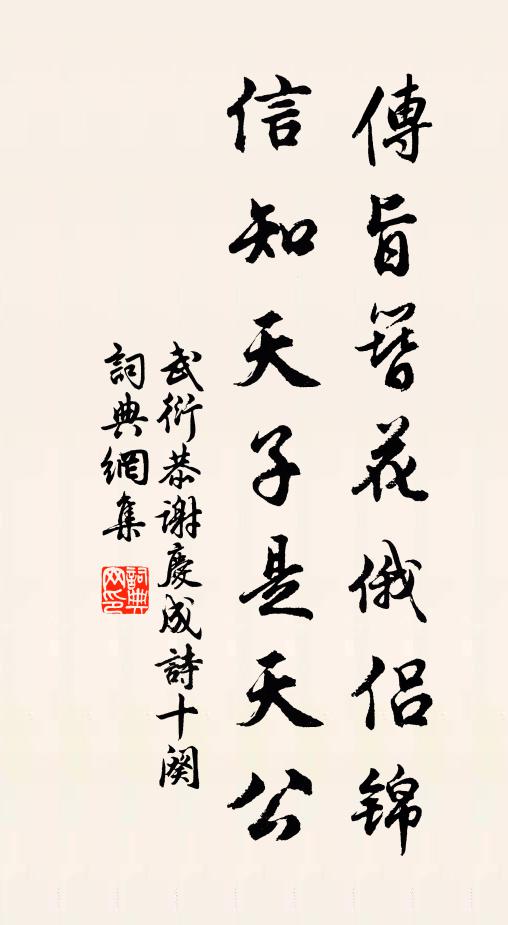 傳旨簪花俄侶錦
信知天子是天公
武衍恭謝慶成詩十闋
詞典網集
詞典網印